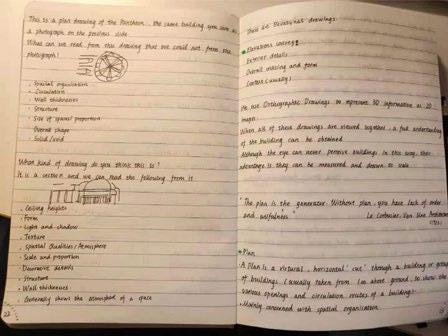 This is a plan drawing of the Pantheon, the same building you saw in
a photograph on the previous slide.
What can we read from this drawing that we could not from the
photograph?
• Spatial organisation
• Circulation
• Wall thicknesses
• Structure
• Size of spatial proportion
Overall shape
• Solid/void
What kind of drawing do you think this is?
It is a section and we can read the following from it
• Ceiling heights
• Form
• Light and shadow
• Texture
• Spatial Qualities / Atmosphere
• Scale and proportion
• Decorative details
• Structure
• Wall thicknesses
• Generally shows the of a space
22
These are Elevational drawings:
• Elevations convey
Exterior details
Overall massing and form
Context (usually)
We use Orthographic Drawings to represent 3D information as 2D
images.
When all of these drawings are viewed together, a full understanding
of the building can be obtained.
Although the eye can never perceive buildings in this way, their
advantage is they can be measured and drawn to scale.
"The plan is the generator. Without plan, you have lack of order
and wilfulness"
Le Corbusier, Vers Une Architecture
• Plan
• A Plan is a virtual, horizontal 'cut' through a building or group
of buildings (usually taken from 1m above ground, to show the
various openings and circulation routes of a building.
• Mainly concerned with spatial organisation.